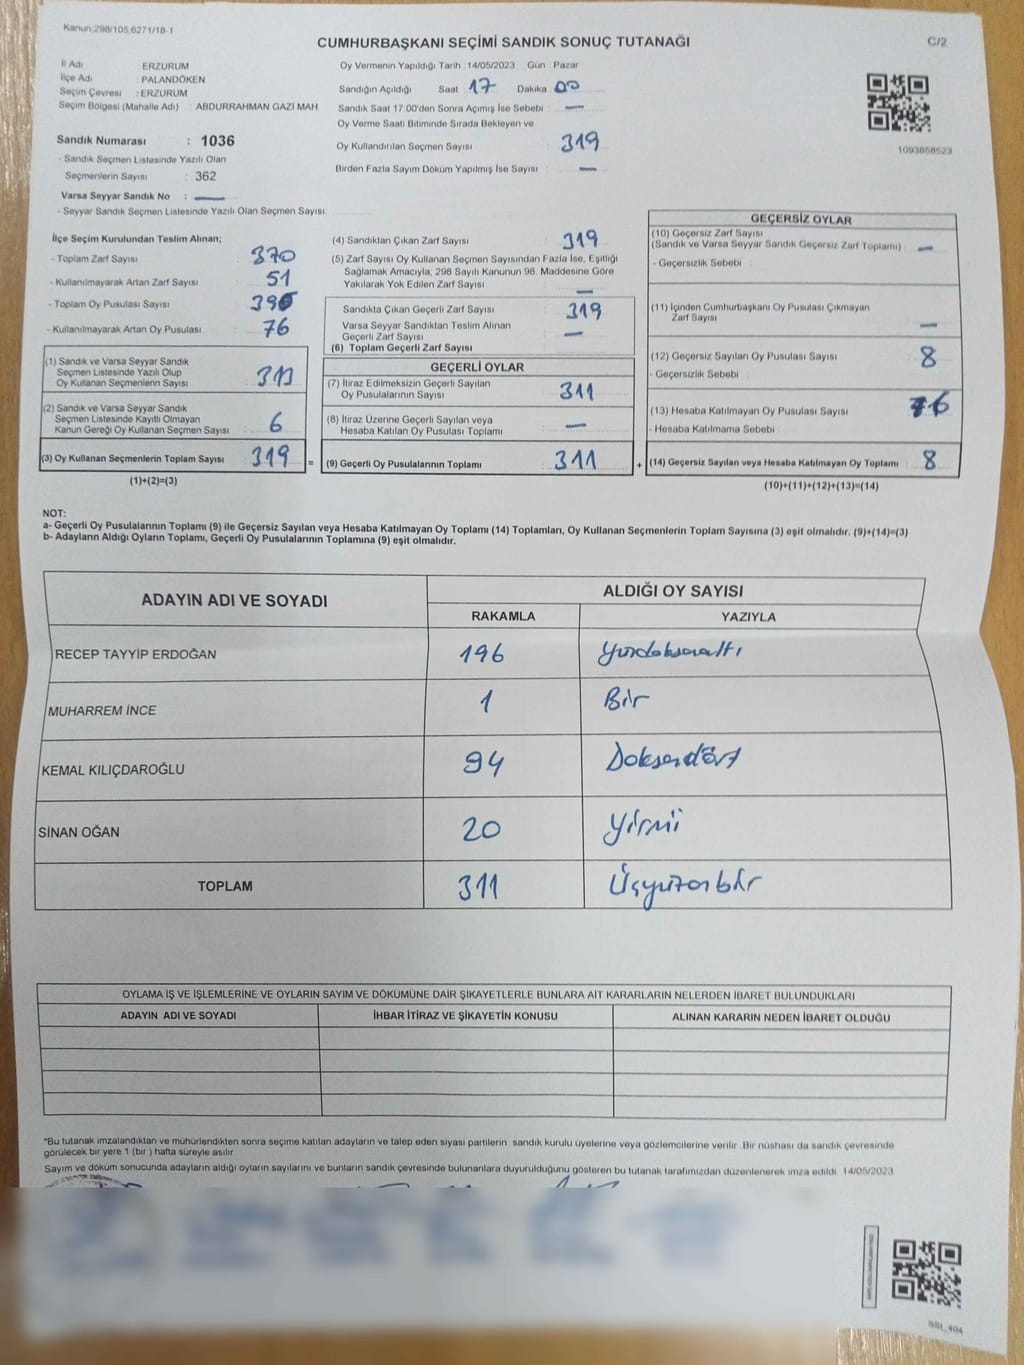 Kanun:298/105,6271/18-1
CUMHURBAŞKANI SEÇİMİ SANDIK SONUÇ TUTANAĞI
C/2
İl Adı : ERZURUM
İlçe Adı : PALANDÖKEN
Seçim Çevresi : ERZURUM
Seçim Bölgesi (Mahalle Adı) : ABDURRAHMAN GAZİ MAH
Sandık Numarası : 1036
- Sandık Seçmen Listesinde Yazılı Olan
Seçmenlerin Sayısı : 362
Varsa Seyyar Sandık No : —
- Seyyar Sandık Seçmen Listesinde Yazılı Olan Seçmen Sayısı
Oy Vermenin Yapıldığı Tarih : 14/05/2023 Gün : Pazar
Sandığın Açıldığı Saat : 17 Dakika : 00
Sandık Saat 17:00'den Sonra Açımış İse Sebebi : —
Oy Verme Saati Bitiminde Sırada Bekleyen ve
Oy Kullandırılan Seçmen Sayısı : 319
Birden Fazla Sayım Döküm Yapılmış İse Sayısı : —
1093858523
İlçe Seçim Kurulundan Teslim Alınan;
- Toplam Zarf Sayısı : 370
- Kullanılmayarak Artan Zarf Sayısı : 51
- Toplam Oy Pusulası Sayısı : 395
- Kullanılmayarak Artan Oy Pusulası : 76
(1) Sandık ve Varsa Seyyar Sandık
Seçmen Listesinde Yazılı Olup
Oy Kullanan Seçmenlerin Sayısı : 313
(2) Sandık ve Varsa Seyyar Sandık
Seçmen Listesinde Kayıtlı Olmayan
Kanun Gereği Oy Kullanan Seçmen Sayısı : 6
(3) Oy Kullanan Seçmenlerin Toplam Sayısı : 319
(1)+(2)=(3)
(4) Sandıktan Çıkan Zarf Sayısı : 319
(5) Zarf Sayısı Oy Kullanan Seçmen Sayısından Fazla İse, Eşitliği
Sağlamak Amacıyla, 298 Sayılı Kanunun 98. Maddesine Göre
Yakılarak Yok Edilen Zarf Sayısı : —
Sandıkta Çıkan Geçerli Zarf Sayısı : 319
Varsa Seyyar Sandıktan Teslim Alınan
Geçerli Zarf Sayısı : —
(6) Toplam Geçerli Zarf Sayısı
GEÇERLİ OYLAR
(7) İtiraz Edilmeksizin Geçerli Sayılan
Oy Pusulalarının Sayısı : 311
(8) İtiraz Üzerine Geçerli Sayılan veya
Hesaba Katılan Oy Pusulası Toplamı : —
= (9) Geçerli Oy Pusulalarının Toplamı : 311
GEÇERSİZ OYLAR
(10) Geçersiz Zarf Sayısı
(Sandık ve Varsa Seyyar Sandık Geçersiz Zarf Toplamı) : —
- Geçersizlik Sebebi :
(11) İçinden Cumhurbaşkanı Oy Pusulası Çıkmayan
Zarf Sayısı : —
(12) Geçersiz Sayılan Oy Pusulası Sayısı : 8
- Geçersizlik Sebebi :
(13) Hesaba Katılmayan Oy Pusulası Sayısı : 76
- Hesaba Katılmama Sebebi :
+ (14) Geçersiz Sayılan veya Hesaba Katılmayan Oy Toplamı : 8
(10)+(11)+(12)+(13)=(14)
NOT:
a- Geçerli Oy Pusulalarının Toplamı (9) ile Geçersiz Sayılan veya Hesaba Katılmayan Oy Toplamı (14) Toplamları, Oy Kullanan Seçmenlerin Toplam Sayısına (3) eşit olmalıdır. (9)+(14)=(3)
b- Adayların Aldığı Oyların Toplamı, Geçerli Oy Pusulalarının Toplamına (9) eşit olmalıdır.
ADAYIN ADI VE SOYADI
ALDIĞI OY SAYISI
RAKAMLA YAZIYLA
RECEP TAYYİP ERDOĞAN 196 Yüzdoksanaltı
MUHARREM İNCE 1 Bir
KEMAL KILIÇDAROĞLU 94 Doksandört
SİNAN OĞAN 20 Yirmi
TOPLAM 311 Üçyüzonbir
OYLAMA İŞ VE İŞLEMLERİNE VE OYLARIN SAYIM VE DÖKÜMÜNE DAİR ŞİKAYETLERLE BUNLARA AİT KARARLARIN NELERDEN İBARET BULUNDUKLARI
ADAYIN ADI VE SOYADI İHBAR İTİRAZ VE ŞİKAYETİN KONUSU ALINAN KARARIN NEDEN İBARET OLDUĞU
*Bu tutanak imzalandıktan ve mühürlendikten sonra seçime katılan adayların ve talep eden siyasi partilerin sandık kurulu üyelerine veya gözlemcilerine verilir. Bir nüshası da sandık çevresinde
görülecek bir yere 1 (bir) hafta süreyle asılır
Sayım ve döküm sonucunda adayların aldığı oyların sayılarını ve bunların sandık çevresinde bulunanlara duyurulduğunu gösteren bu tutanak tarafımızdan düzenlenerek imza edildi. 14/05/2023